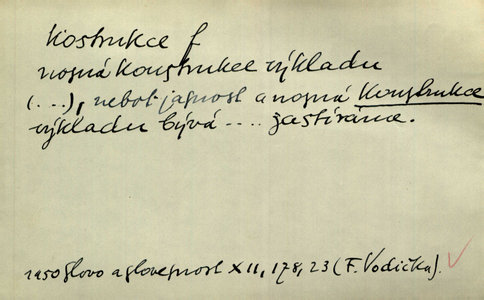 Kostrukce f
nosná konstrukce výkladu
(...), neboť jasnost a nosná konstrukce
výkladu bývá .... zastírána.
1950 Slovo a slovesnost XII, 178, 23 (F. Vodička).